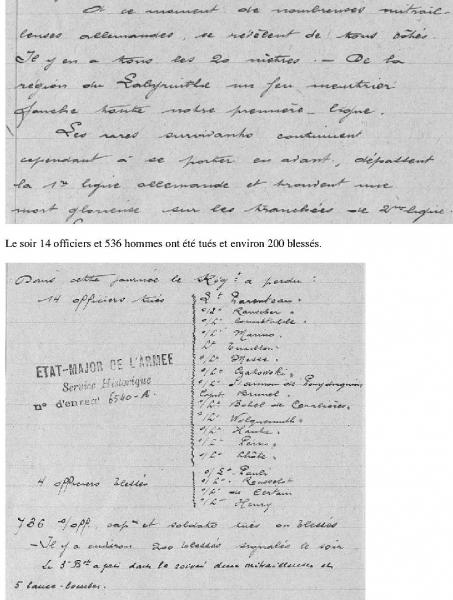 A ce moment de nombreuses mitrail-
leuses allemandes, se révèlent de tous côtés.
Il y en a tous les 20 mètres. — De la
région du Labyrinthe un feu meurtrier
fauche toute notre première ligne.
Les rares survivants continuent
cependant à se porter en avant, dépassent
la 1re ligne allemande et trouvent une
mort glorieuse sur les tranchées de 2me ligne.
Le soir 14 officiers et 536 hommes ont été tués et environ 200 blessés.
Dans cette journée le Régt a perdu :
14 officiers tués
Lt Parenteau
s/Lt Rauscher
s/Lt
s/Lt Manno
Lt
s/Lt Messe
s/Lt Czakowski
s/Lt Harmon de
Capt Brunel
s/Lt Botel de
s/Lt
s/Lt
s/Lt
s/Lt
ETAT-MAJOR DE L'ARMEE
Service Historique
n° d'enreg 6540-A.
4 officiers blessés
s/Lt Pauli
s/Lt Rousselot
s/Lt de Certain
s/Lt Henry
736 s/off. cap. et soldats tués ou blessés
— Il y a environ 200 blessés signalés le soir
Le 3e Bon a pris dans la soirée deux mitrailleuses et
5 lance-bombes.